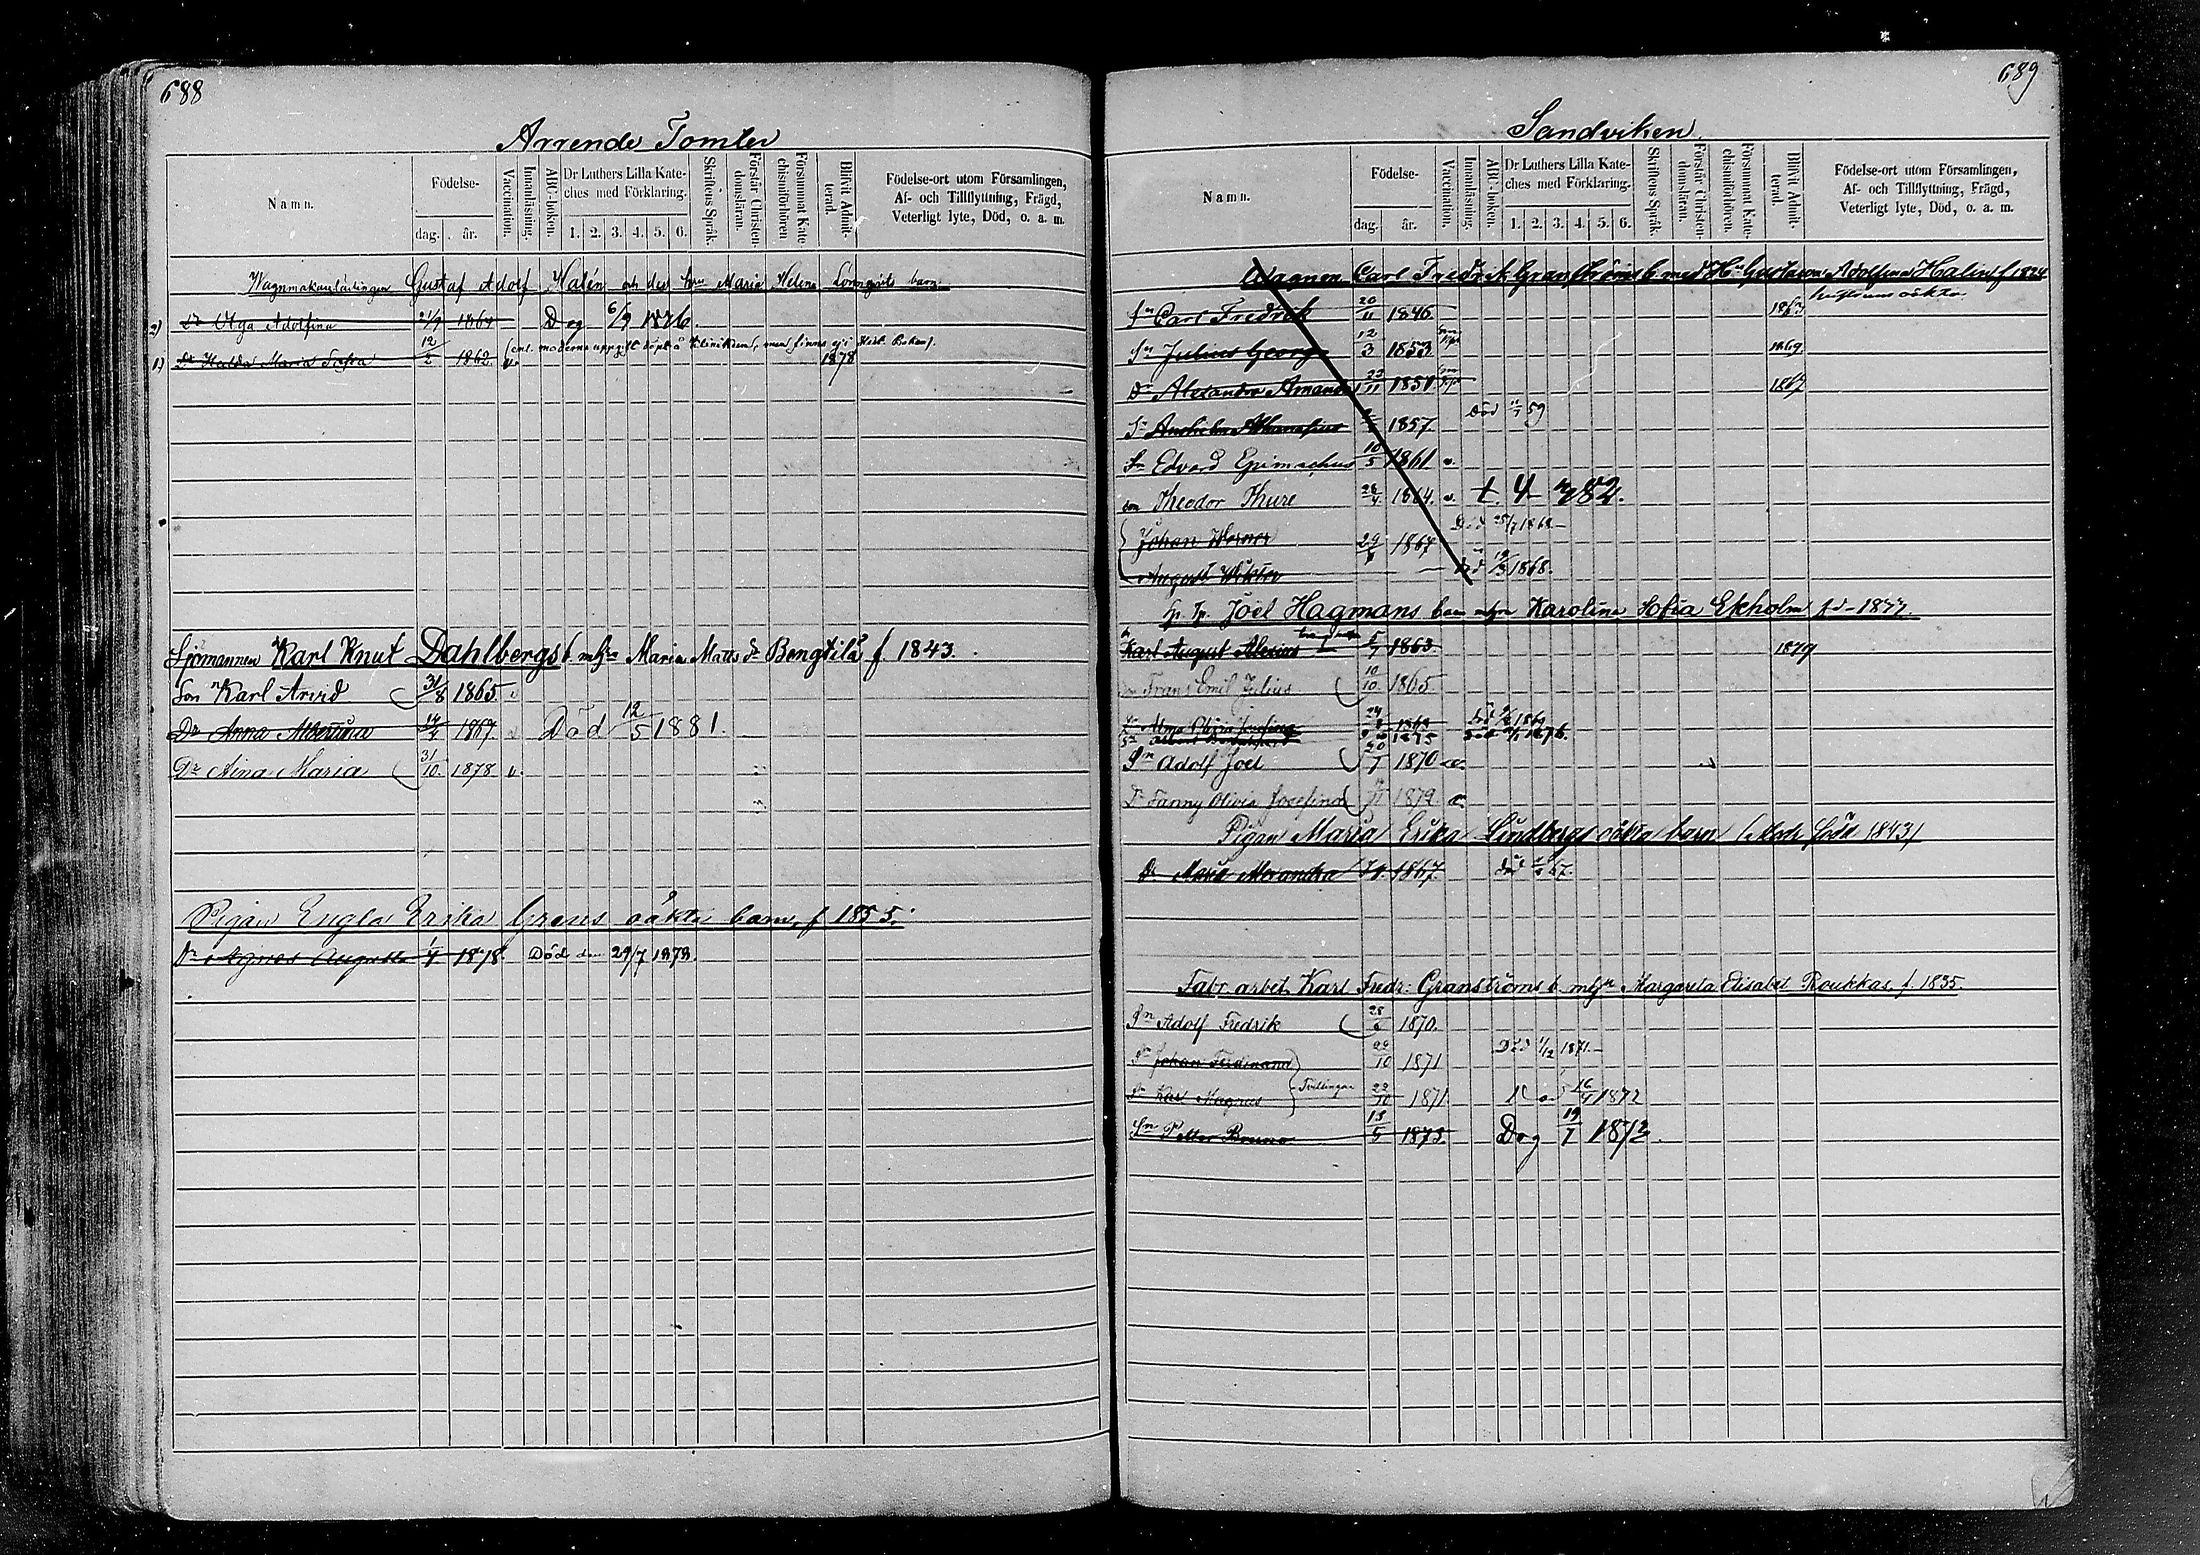 688
Arrende Tomter
Namn.
Födelse-
dag. år.
Vaccination.
Innanläsning.
ABC-boken.
Dr Luthers Lilla Kate-
ches med Förklaring.
1. 2. 3. 4. 5. 6.
Skriftens Språk.
Förstår Christen-
domsläran.
Försummat Kate-
chismiförhören
Blifvit Admit-
terad.
Födelse-ort utom Församlingen,
Af- och Tillflyttning, Frägd,
Veterligt lyte, Död, o. a. m.
Wagnmakarlärlingen Gustaf Adolf Halén och des hru Maria Helena Lönnqvists barn.
2) Dr Olga Adolfina 21/9 1864 Dog 6/9 1876.
(enl. moderns uppgift döpt å Kliniken, men finnes ej i Hist. Boken).
1) Dr Hulda Maria Sofia 12/2 1862. v. 1878
Sjömannen Karl Knut Dahlbergs b. m hru Maria Matts dr Bengtilä f. 1843.
Son Karl Arvid 31/8 1865.
Dr Anna Albertina 1867 Död 12/5 1881.
Dr Aina Maria 31/10. 1878 v.
Pigan Engla Erika Grens oäkta barn, f. 1855.
Dr Agnes Augusta 1/4 1878. Död den 29/7 1878
689
Sandviken.
Namn.
Födelse-
dag. år.
Vaccination.
Innanläsning.
ABC-boken.
Dr Luthers Lilla Kate-
ches med Förklaring.
1. 2. 3. 4. 5. 6.
Skriftens Språk.
Förstår Christen-
domsläran.
Försummat Kate-
chismiförhören.
Blifvit Admit-
terad.
Födelse-ort utom Församlingen,
Af- och Tillflyttning, Frägd,
Veterligt lyte, Död, o. a. m.
Carl Fredrik Granströms b. med H. Gustava Adolfina Halin f. 1824
hustruns oäkta.
Sn Carl Fredrik 20/11 1846. 1863
Sn Julius Georg 12/3 1853 1869
Dr Alexandra Amanda 23/11 1850 1867
Sn 1857. Död 59
Sn Edvard Epimachus 10/5 1861 v.
son Theodor Thure 28/4 1864. v. 82.
Johan Werner 29 1867 Död 25/7 1868
August Wiktor Död 1868.
Joel Hagmans barn m hru Karolina Sofia Ekholm f. d. 1877.
Karl August Alexius 5/7 1863 1879
Frans Emil Julius 10/10 1865
Alma Olivia Josefina 24 1868 Död 1869
1875 Död 1876.
Sn Adolf Joel 20/7 1870
Dr Fanny Olivia Josefina 1872
Pigan Maria Erika Lindbergs oäkta barn (Modr född 1843)
Dr Maria Alexandra 1867. död 67.
Fabr. arbet. Karl Fredr: Granströms b. m hru Margareta Elisabet Roukkas f. 1835.
Sn Adolf Fredrik 28/6 1870.
Sn Johan Ferdinand 22/10 1871 Död 1/12 1871.
Tvillingar
Sn Karl Magnus 22/10 1871 16/4 1872
Sn Petter Bruno 13/5 1873. Dog 19/7 1873.